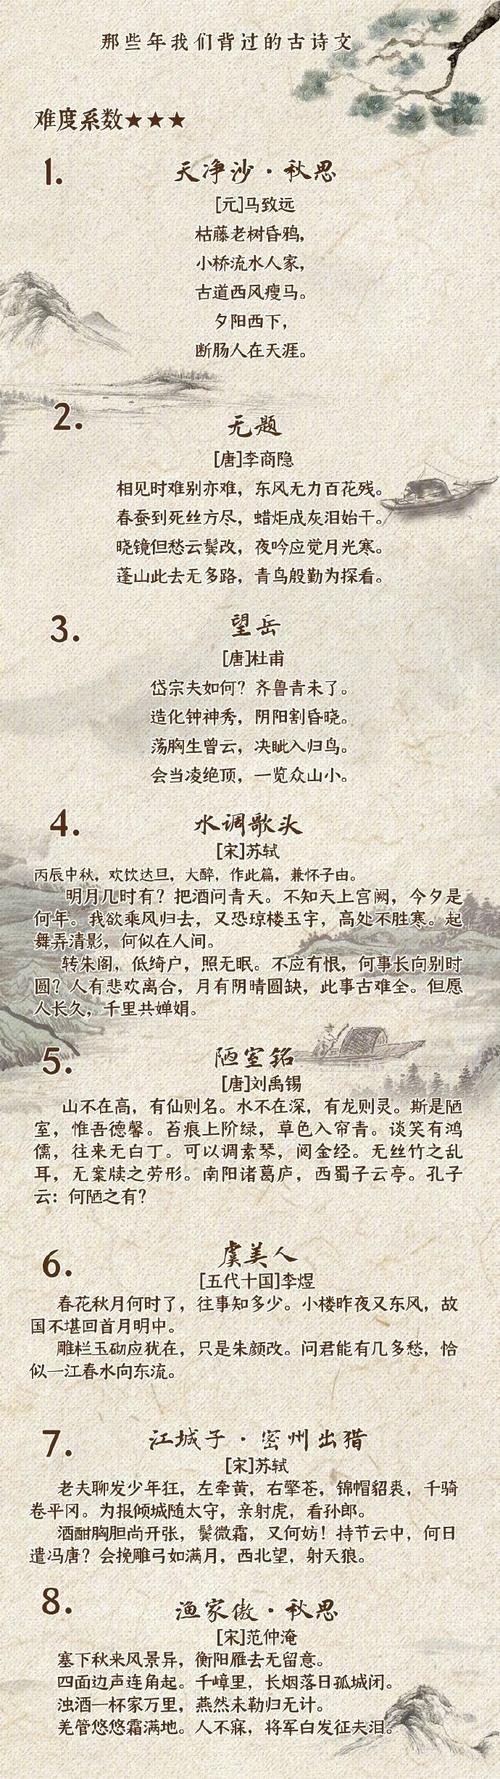 那些年我们背过的古诗文
难度系数★★★
1.
天净沙·秋思
[元]马致远
枯藤老树昏鸦,
小桥流水人家,
古道西风瘦马。
夕阳西下,
断肠人在天涯。
2.
无题
[唐]李商隐
相见时难别亦难，东风无力百花残。
春蚕到死丝方尽，蜡炬成灰泪始干。
晓镜但愁云鬓改，夜吟应觉月光寒。
蓬山此去无多路，青鸟殷勤为探看。
3.
望岳
[唐]杜甫
岱宗夫如何？齐鲁青未了。
造化钟神秀，阴阳割昏晓。
荡胸生曾云，决眦入归鸟。
会当凌绝顶，一览众山小。
4.
水调歌头
[宋]苏轼
丙辰中秋，欢饮达旦，大醉，作此篇，兼怀子由。
明月几时有？把酒问青天。不知天上宫阙，今夕是
何年。我欲乘风归去，又恐琼楼玉宇，高处不胜寒。起
舞弄清影，何似在人间。
转朱阁，低绮户，照无眠。不应有恨，何事长向别时
圆？人有悲欢离合，月有阴晴圆缺，此事古难全。但愿
人长久，千里共婵娟。
5.
陋室铭
[唐]刘禹锡
山不在高，有仙则名。水不在深，有龙则灵。斯是陋
室，惟吾德馨。苔痕上阶绿，草色入帘青。谈笑有鸿
儒，往来无白丁。可以调素琴，阅金经。无丝竹之乱
耳，无案牍之劳形。南阳诸葛庐，西蜀子云亭。孔子
云：何陋之有？
6.
虞美人
[五代十国]李煜
春花秋月何时了，往事知多少。小楼昨夜又东风，故
国不堪回首月明中。
雕栏玉砌应犹在，只是朱颜改。问君能有几多愁，恰
似一江春水向东流。
7.
江城子·密州出猎
[宋]苏轼
老夫聊发少年狂，左牵黄，右擎苍，锦帽貂裘，千骑
卷平冈。为报倾城随太守，亲射虎，看孙郎。
酒酣胸胆尚开张，鬓微霜，又何妨！持节云中，何日
遣冯唐？会挽雕弓如满月，西北望，射天狼。
8.
渔家傲·秋思
[宋]范仲淹
塞下秋来风景异，衡阳雁去无留意。
四面边声连角起。千嶂里，长烟落日孤城闭。
浊酒一杯家万里，燕然未勒归无计。
羌管悠悠霜满地。人不寐，将军白发征夫泪。